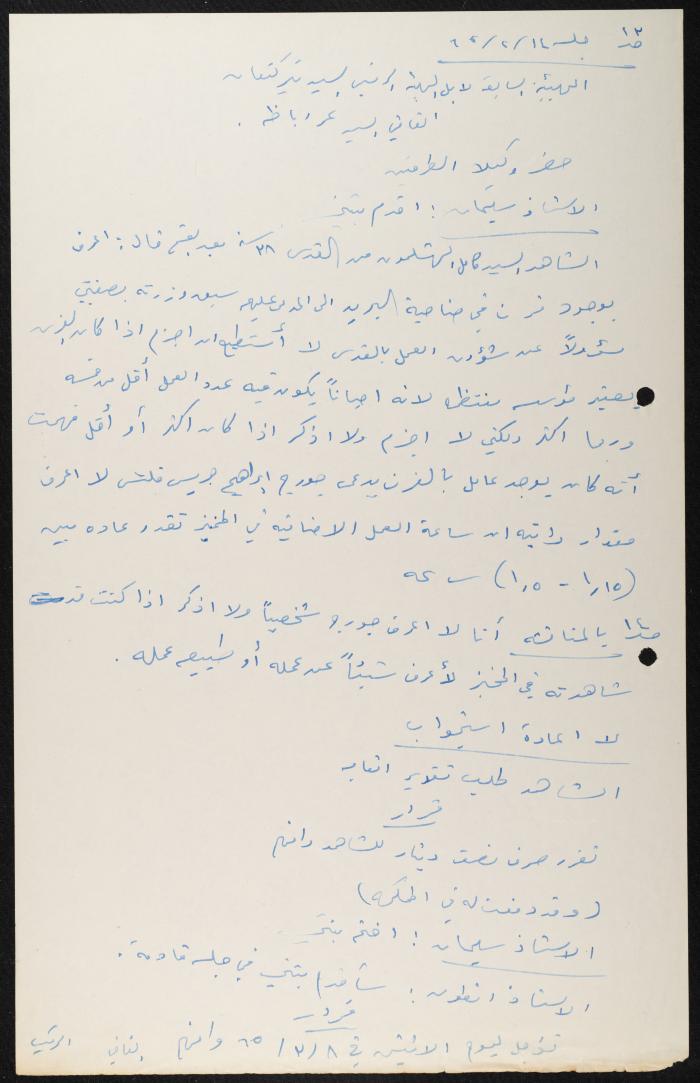 ص١٣ جلسة ١٤/٢/٦٥
الهيئة السابقة الهيئة الرئيس السيد
القاضي السيد عمر اباظه .
حضر وكيلا الطرفين
الاستاذ سليمان : اقدم بينتي
الشاهد السيد كامل من القدس ٣٨ سنة بعد القسم قال : اعرف
بوجود فرن في ضاحية البريد الى المدعى عليهم سبق وزرته بصفتي
مسؤولاً عن شؤون العمل بالقدس لا أستطيع ان اجزم اذا كان الفرن
يعتبر مؤسسه منتظمه لانه احياناً يكون فيه عدد العمل أقل من خمسه
وربما اكثر ولكني لا اجزم ولا اذكر اذا كان اكثر أو أقل فهمت
أنه كان يوجد عامل بالفرن يدعى جورج ابراهيم جريس لا اعرف
مقدار راتبه ان ساعة العمل الاضافيه في المخبز تقدر عاده بين
(١,١٥ - ١,٥) ساعه
ص١٤ بالمناقشه أنا لا اعرف جورج شخصياً ولا اذكر اذا كنت قد
شاهدته في المخبز لأعرف شيئاً عن عمله أو طبيعه عمله .
لا اعادة استجواب
الشاهد طلب تقدير اتعابه
قرار
تقرر صرف نصف دينار للشاهد وافهم
(وقد دفعت له في المحكمه)
الاستاذ سليمان : اختم بينتي
الاستاذ انطون : سأقدم بينتي في جلسه قادمة .
قرار
تؤجل ليوم الاثنين في ٨/٣/٦٥ وافهم الرئيس